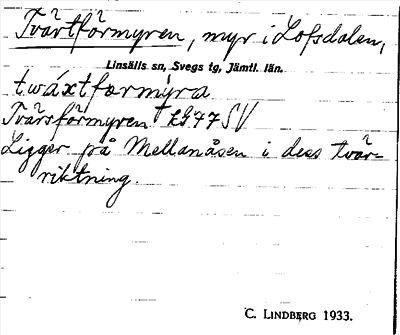 Tvärtförmyren, myr i Lofsdalen,
Linsälls sn, Svegs tg, Jämtl. län.
twáxtfœrmýra
Tvärsförmyren + LG77 SV
Ligger på Mellanåsen i dess tvär-
riktning.
C. LINDBERG 1933.